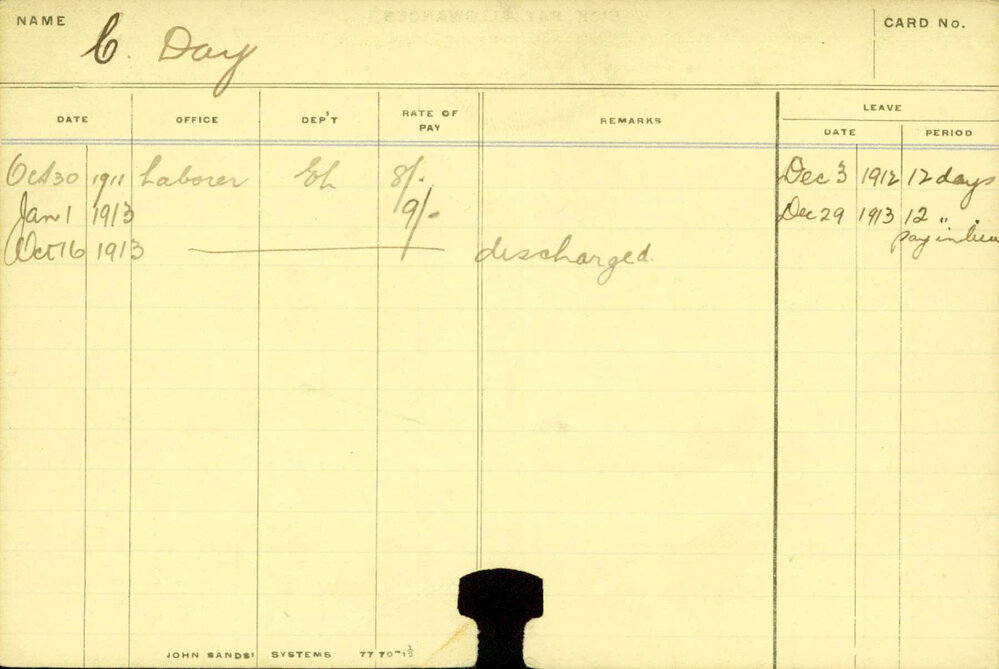 NAME C. Day CARD No.
LEAVE
DATE OFFICE DEP'T RATE OF PAY REMARKS DATE PERIOD
Oct 30 1911 Laborer 8/- Dec 3 1912 12 days
Jan 1 1913 9/- Dec 29 1913 12 "
pay in lieu
Oct 16 1913 discharged.
JOHN SANDS' SYSTEMS